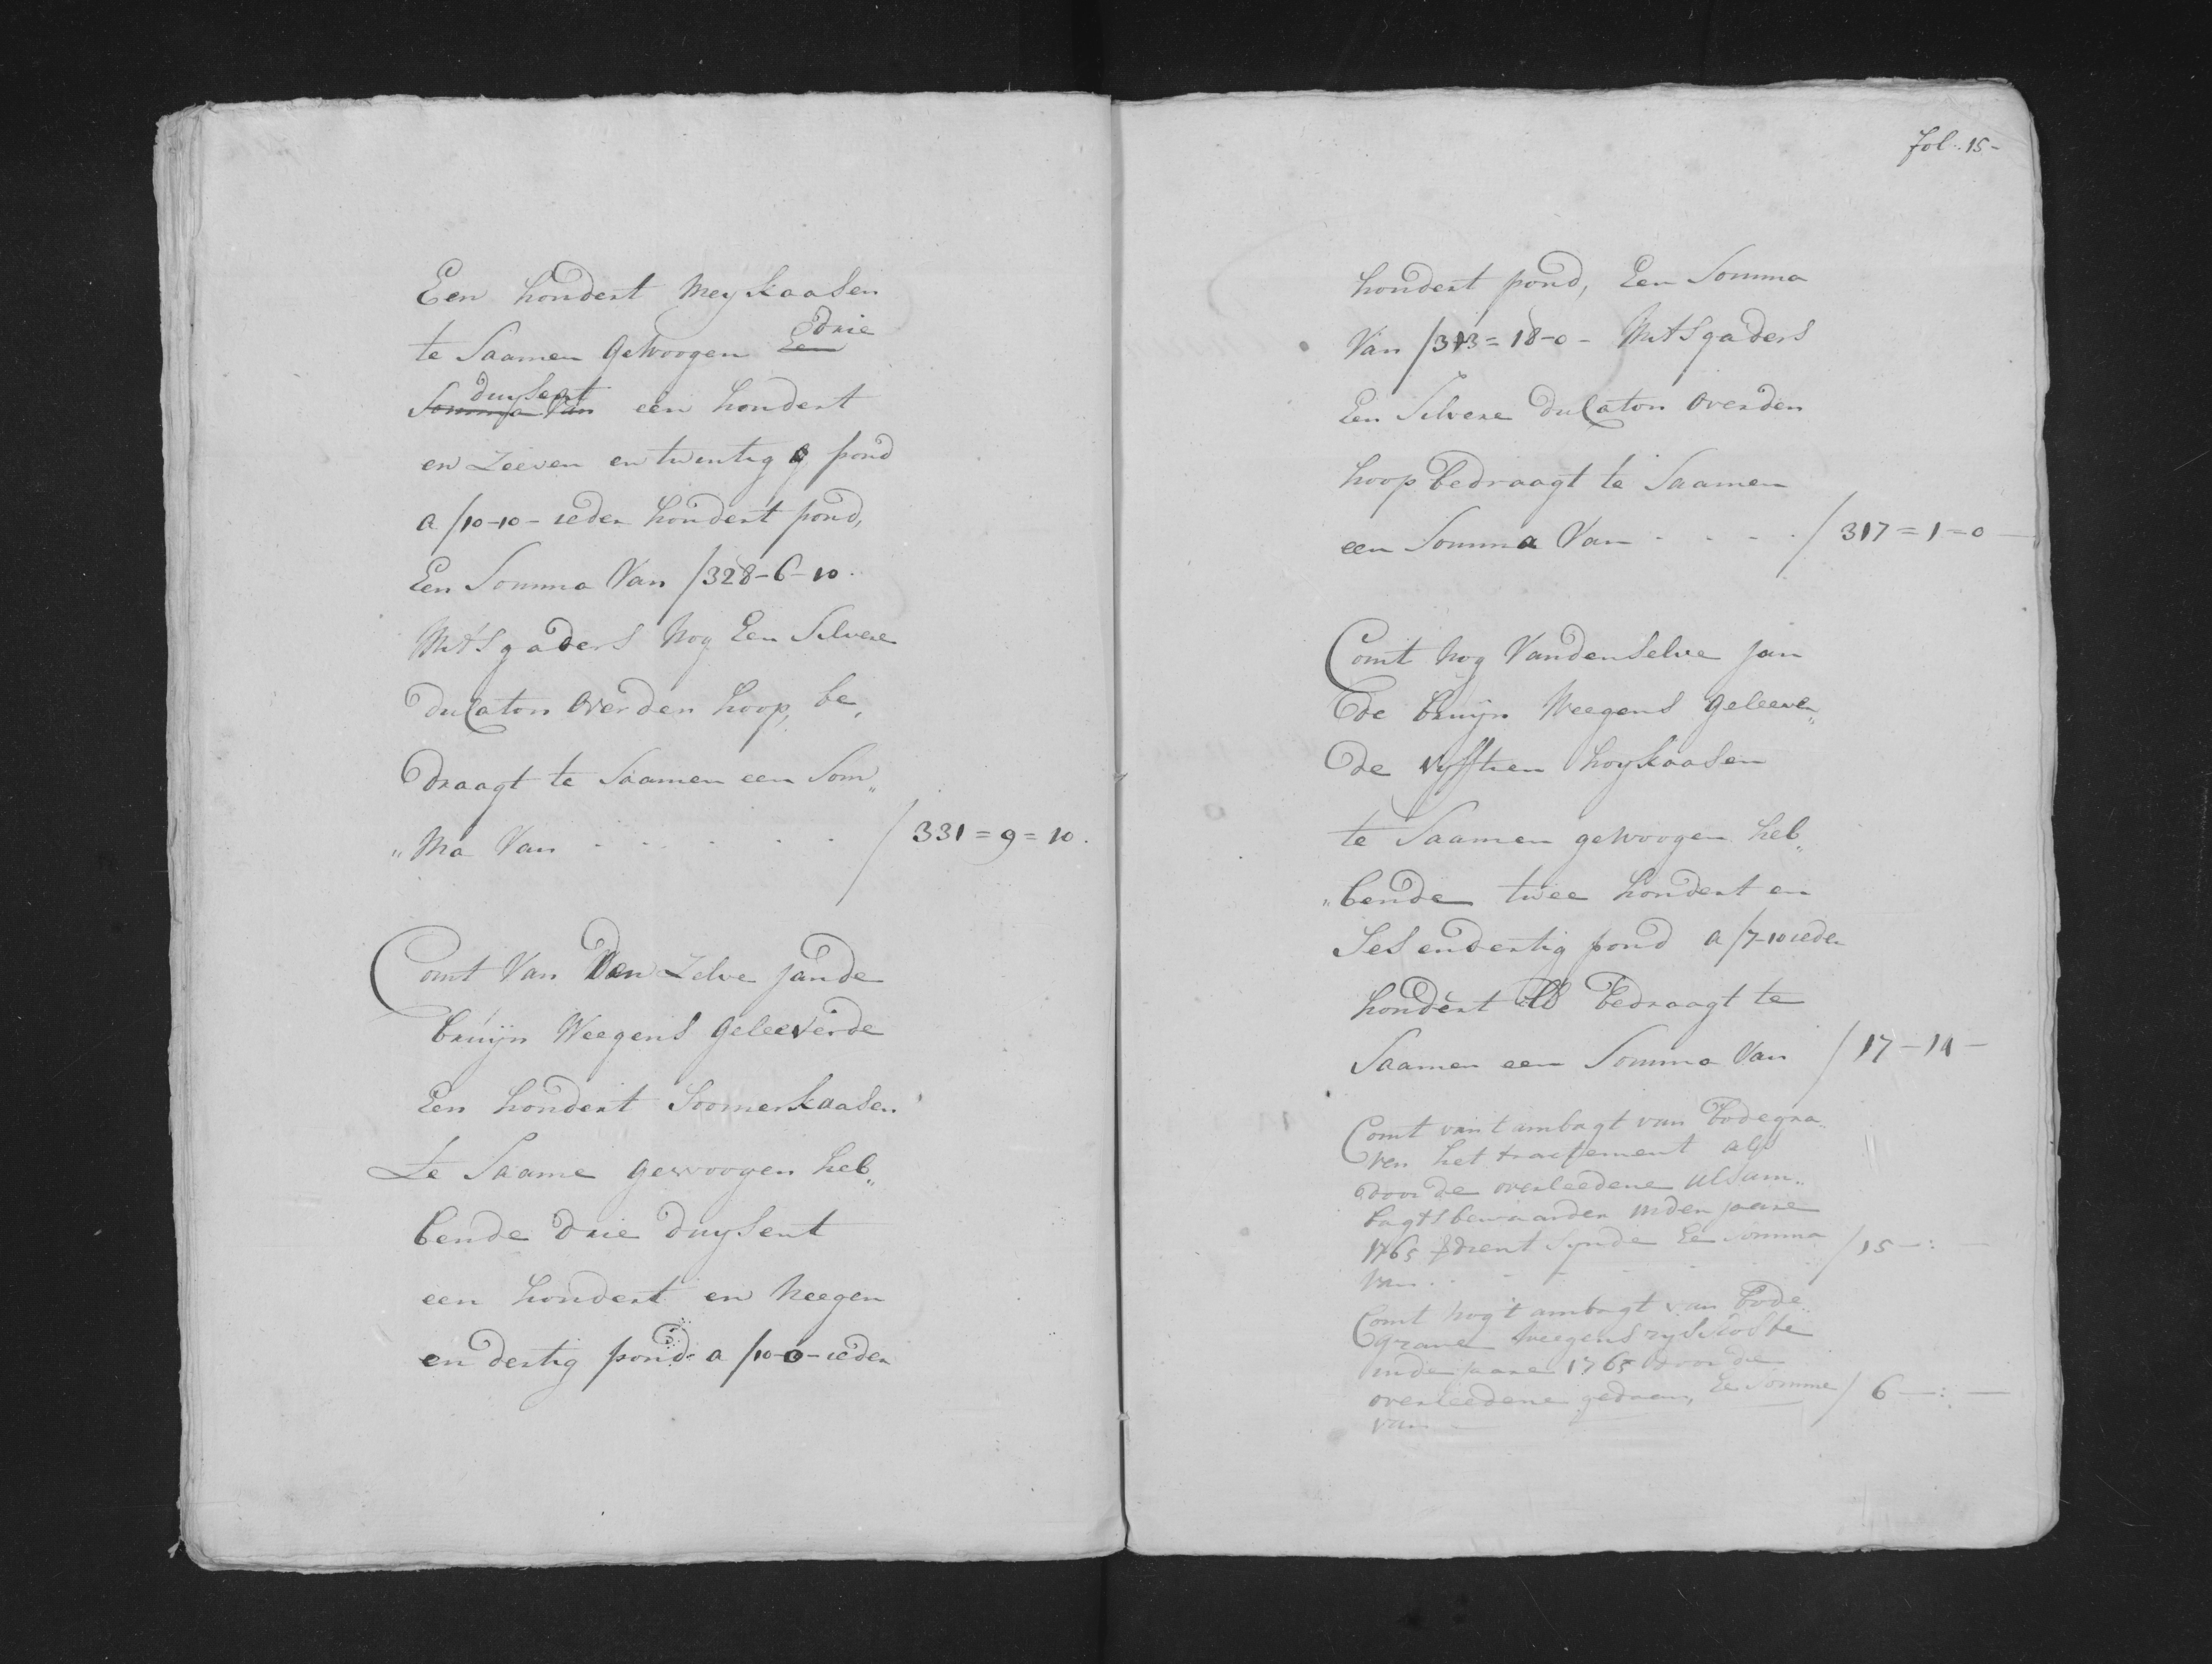 Een hondert Meykaasen
te Saamen gewoogen Een drie
Somma Van duysent een hondert
en Zeeven en twintig pond
a ƒ10-10- ieder hondert pond,
Een Somma Van ƒ328-6-10.
Mitsgaders nog Een Silvere
duCaton over den hoop, be„
draagt te Saamen een Som„
„ma Van - - - - - ƒ331=9=10.
Comt Van Den Zelve Jan de
bruijn Weegens geleeverde
Een hondert Soomerkaasen
te Saame gewoogen heb„
bende drie duysent
een hondert en Neegen
en dertig pond a ƒ10-0- ieder
fol: 15-
hondert pond, Een Somma
Van ƒ313=18-0- Mitsgaders
Een Silvere duCaton over den
hoop bedraagt te Saamen
een Somma Van - - - - ƒ317=1=0
Comt nog Van den Selve Jan
de bruijn Weegens geleever„
de vyfftien hoykaasen
te Saamen gewoogen heb„
„bende twee hondert en
Ses en dertig pond a ƒ7-10 ieder
hondert lb bedraagt te
Saamen een Somma Van ƒ17-14-
Comt van t ambagt van Bodegra„
ven het tractement als
door de overleedene als am„
bagtsbewaarder inden jaare
1765 verdient synde Ee somma ƒ15-:-
van . . - - - -
Comt nog 't ambagt van Bode„
grave weegens
inde jaare 1765 door de
overleedene gedaan, Ee somme ƒ6-:-
van -